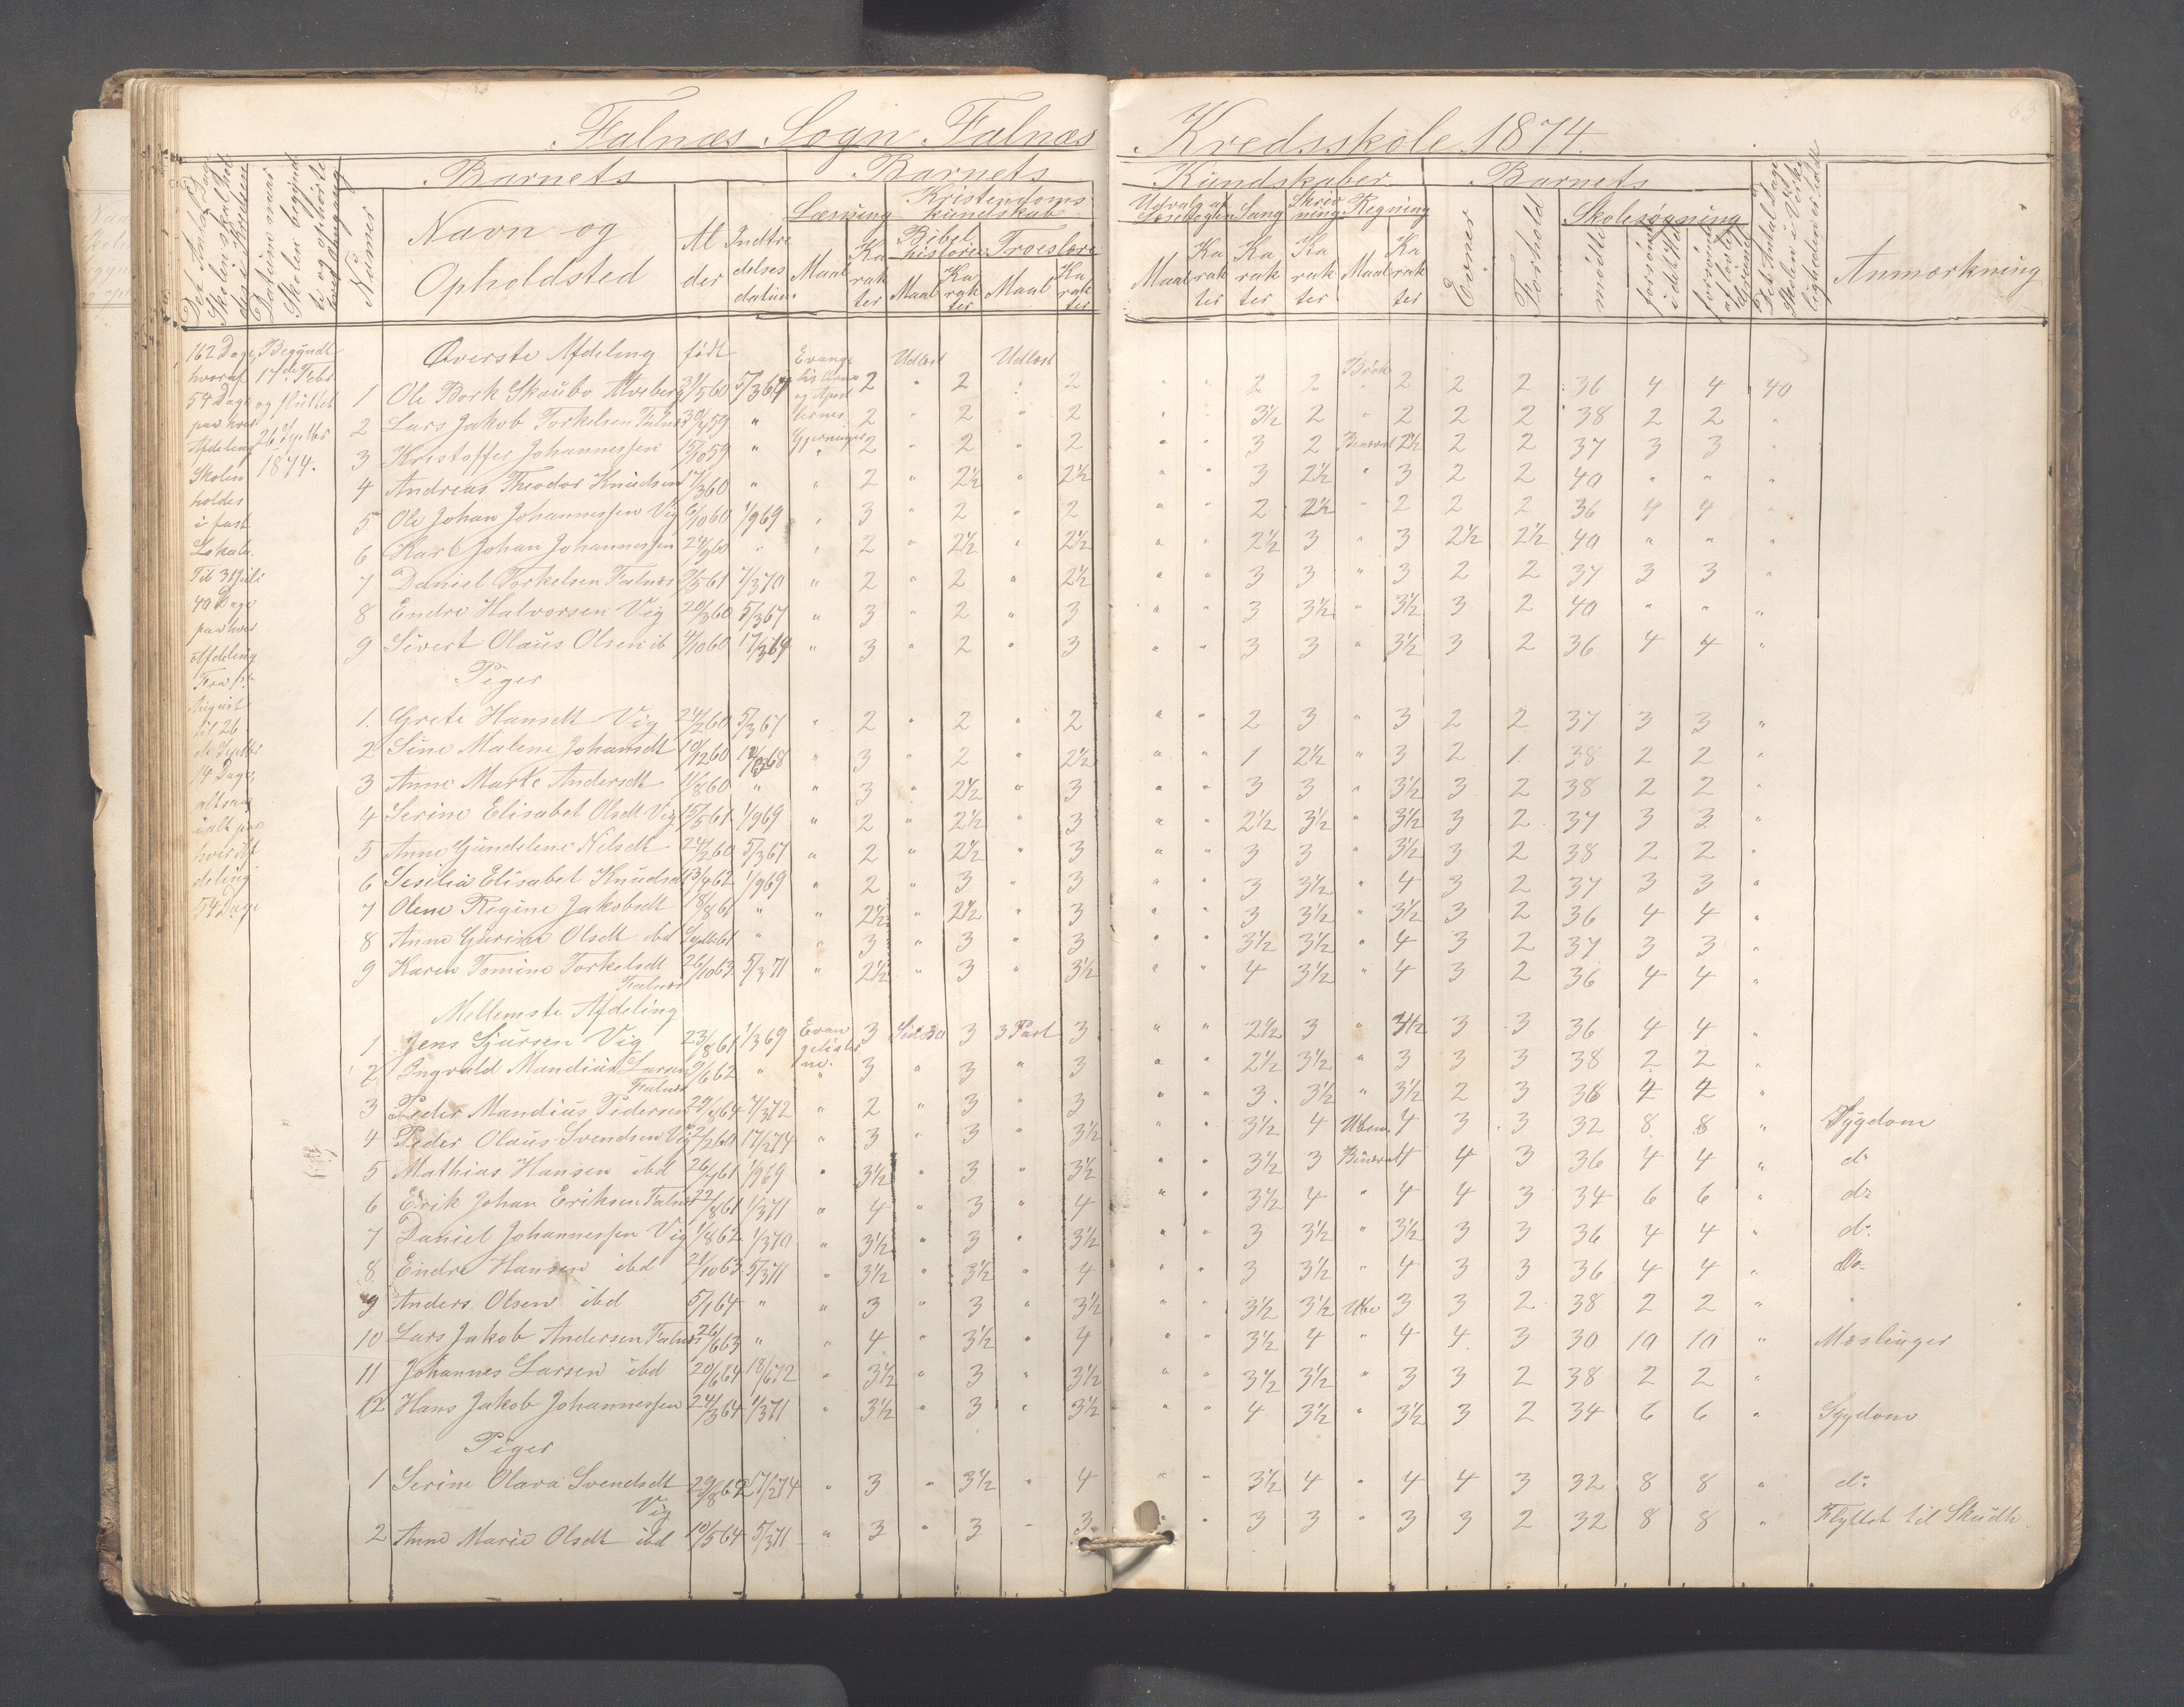 Falnæs Sogn Falnæs Kredsskole 1874.
63
Barnets Barnets Kundskaber Barnets
Det Antal Dage Skolen skal holdes i Kredsen
Datum naar Skolen begyndte og ophørte hver Omgang
Numer
Navn og Opholdsted
Alder
Indtrædelsesdatum
Læsning Maal Karakter
Kristendomskundskab
Bibelhistorien Maal Karakter
Troeslære Maal Karakter
Udvalg af Læsebogen Maal Karakter
Sang Karakter
Skrivning Karakter
Regning Maal Karakter
Evner
Forhold
Skolesøgning
mødte
forsømte i det Hele
forsømte af lovlig Grund
Det Antal Dage Skolen i Virkeligheden er holdt
Anmærkning
162 Dage hvoraf 54 Dage paa hver Afdeling Skolen holdes i fast Lokale.
Til 31 Juli 40 Dage paa hver Afdeling
Fra 1st August til 26 de Septbr 14 Dage altsaa ialt paa hver Afdeling 54 Dage
Begyndt 17de Febr og sluttet 26 Septbr 1874.
Øverste Afdeling født Evangelisterne og Apostlernes Gjerninger Udlæst Udlæst Brøk
1 Ole Bork Skaubo 31/5 60 5/3 67 2 " 2 " 2 " " 2 2 " 2 2 2 36 4 4 40
2 Lars Jakob Torkelsen Falnæs 30/4 59 " 2 " 2 " 2 " " 3½ 2 " 2 2 2 38 2 2 "
3 Kristoffer Johannessen 15/10 59 " " 2 " 2 " 2 " " 3 2 Benævnt 2½ 2 2 37 3 3 "
4 Andreas Theodor Knudsen 17/3 60 " " 2 " 2½ " 2½ " " 3 2½ " 3 2 2 40 " " "
5 Ole Johan Johannessen Vig 6/10 60 1/9 69 " 3 " 2 " 2 " " 2 2½ " 2 2 2 36 4 4 "
6 Karl Johan Johannessen 24/9 60 " " 2 " 2½ " 2½ " " 2½ 3 " 3 2½ 2½ 40 " " "
7 Daniel Torkelsen Falnæs 9/5 61 7/3 70 " 2 " 2 " 2½ " " 3 3 " 3 2 2 37 3 3 "
8 Endre Halvorsen Vig 20/3 60 5/3 67 " 3 " 2 " 3 " " 3 3½ " 3½ 3 2 40 " " "
9 Sivert Olaus Olsen ib 4/10 60 17/3 69 " 3 " 2 " 3 " " 3 3 " 3½ 3 2 36 4 4 "
Piger
1. Grete Hansdt Vig 24/2 60 5/3 67 " 2 " 2 " 2 " " 2 3 " 3 2 2 37 3 3 "
2 Sine Malene Johansdt 10/12 60 68 " 3 " 2 " 2½ " " 1 2½ " 3 2 1. 38 2 2 "
3 Anne Marte Andersdt 11/8 60 " " 3 " 2½ " 3 " " 3 3 " 3½ 3 2 38 2 2 "
4 Serine Elisabet Olsdt Vig 15/5 61 1/9 69 " 2 " 2½ " 3 " " 2½ 3½ " 3½ 3 2 37 3 3 "
5 Anne Gundelene Nilsdt 24/2 60 5/3 67 " 2 " 2½ " 3 " " 3 3 " 3½ 3 2 38 2 2 "
6 Sesilia Elisabet Knudsdt 13/4 62 1/9 69 " 2 " 3 " 3 " " 3 3½ " 4 3 2 37 3 3 "
7 Olene Regine Jakobsdt 18/8 61 " " 2½ " 2½ " 3 " " 3 3½ " 3½ 3 2 36 4 4 "
8 Anne Gurine Olsdt ibd Septbr 61 " " 3 " 3 " 3 " " 3½ 3½ " 4 3 2 37 3 3 "
9 Karen Tomine Torkelsdt Falnæs 26/10 63 5/3 71 " 2½ " 3 " 3½ " " 4 3½ " 4 3 2 36 4 4 "
Mellemste Afdeling
1 Jens Sjursen Vig 23/8 61 1/3 69 Evangelisterne. 3 Side 30 3 3 Part 3 " " 2½ 3 " 3½ 3 3 36 4 4 "
2 Ingvald Mandius Larsen Falnæs 9/6 62 " " 3 " 3 " 3 " " 2½ 3½ " 3 3 3 38 2 2 "
3 Peder Mandius Pedersen 29/8 64 7/3 72 " 2 " 3 " 3 " " 3. 3½ " 3½ 2 3 36 4 4 "
4 Peder Olaus Svendsen Vig 2/2 60 17/2 74 " 3 " 3 " 3½ " " 3½ 4 Uben. 4 3 3 32 8 8 " Sygdom
5 Mathias Hansen ibd 26/4 61 1/9 69 " 3½ " 3 " 3½ " " 3½ 3 Benævnt 4 4 3 36 4 4 " do
6 Erik Johan Eriksen Falnæs 22/8 61 1/3 71 " 4 " 3 " 4 " " 3½ 4 " 4 4 3 34 6 6 " do
7 Daniel Johannessen Vig 1/8 62 1/3 70 " 3½ " 3 " 3½ " " 3 3½ " 3½ 3 3 36 4 4 " do.
8. Endre Hansen ibd 21/10 63 5/3 71 " 3½ " 3½ " 4 " " 3 3½ " 4 3 3 36 4 4 " do
9 Anders Olsen ibd 5/1 64 " " 3 " 3 " 3½ " " 3½ 3½ Ube 3 3 2 38 2 2 " "
10 Lars Jakob Andersen Falnæs 26/6 63 " " 4 " 3½ " 4 " " 3½ 4 " 4 4 3 30 10 10 " Mæslinger
11 Johannes Larsen ibd 20/6 64 18/6 72 " 3½ " 3 " 3½ " " 3½ 3½ " 3 3 2 38 2 2 "
12 Hans Jakob Johannessen 24/3 64 1/3 71 " 3½ " 3 " 3½ " " 4 3½ " 3½ 3 2 34 6 6 " Sygdom
Piger
1 Serine Olava Svendsdt Vig 29/8 62 17/2 74 " 3 " 3½ " 4 " " 3½ 4 " 4 4 3 32 8 8 " do
2 Anne Marie Olsdt ibd 10/5 64 5/3 71 " 3 " 3 " 3. " " 3 3 " 3 3 2 32 8 8 " Flyttet til Skudh